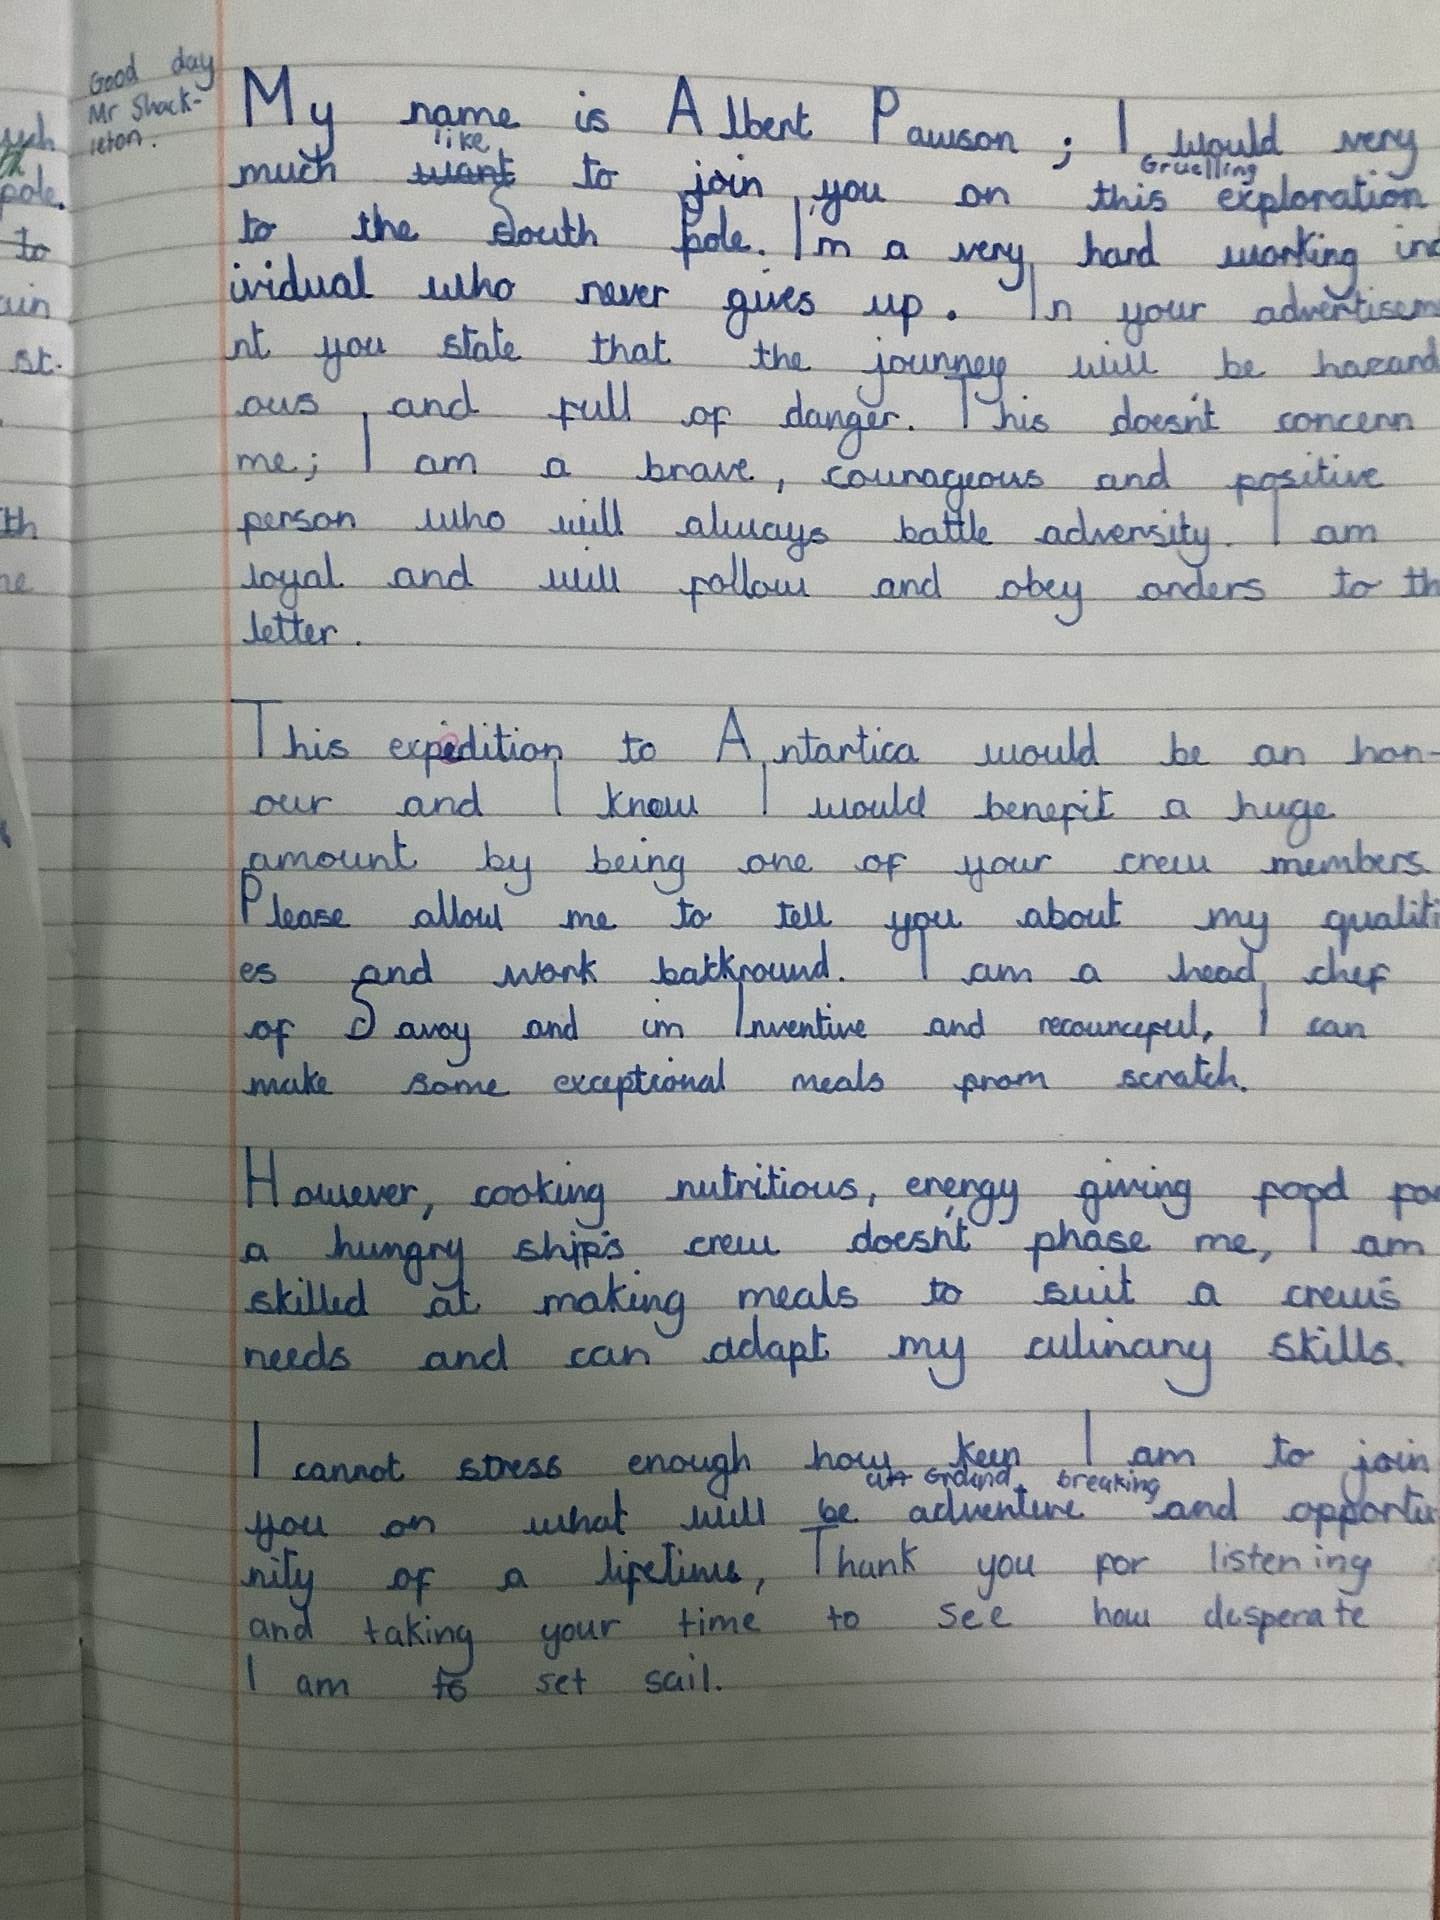 Good day
Mr Shack-
leton.
My name is Albert Pawson ; I would very
like
Gruelling
much want to join you on this exploration
to the South Pole. I'm a very hard working ind
ividual who never gives up. In your advertisem
nt you state that the journey will be hazard
ous and full of danger. This doesn't concern
me; I am a brave, courageous and positive
person who will always battle adversity. I am
loyal and will follow and obey orders to th
letter.
This expedition to Antartica would be an hon-
our and I know I would benefit a huge
amount by being one of your crew members.
Please allow me to tell you about my qualiti
es and work batkround. I am a head chef
of Savoy and im Inventive and recourceful, I can
make some exceptional meals from scratch.
However, cooking nutritious, energy giving food for
a hungry ship's crew doesn't phase me, I am
skilled at making meals to suit a crew's
needs and can adapt my culinary skills.
I cannot stress enough how keen I am to join
Ground breaking
you on what will be adventure and opportu
nity of a lifetime, Thank you for listening
and taking your time to see how desperate
I am to set sail.
ch
pole.
to
ain
st.
th
ne